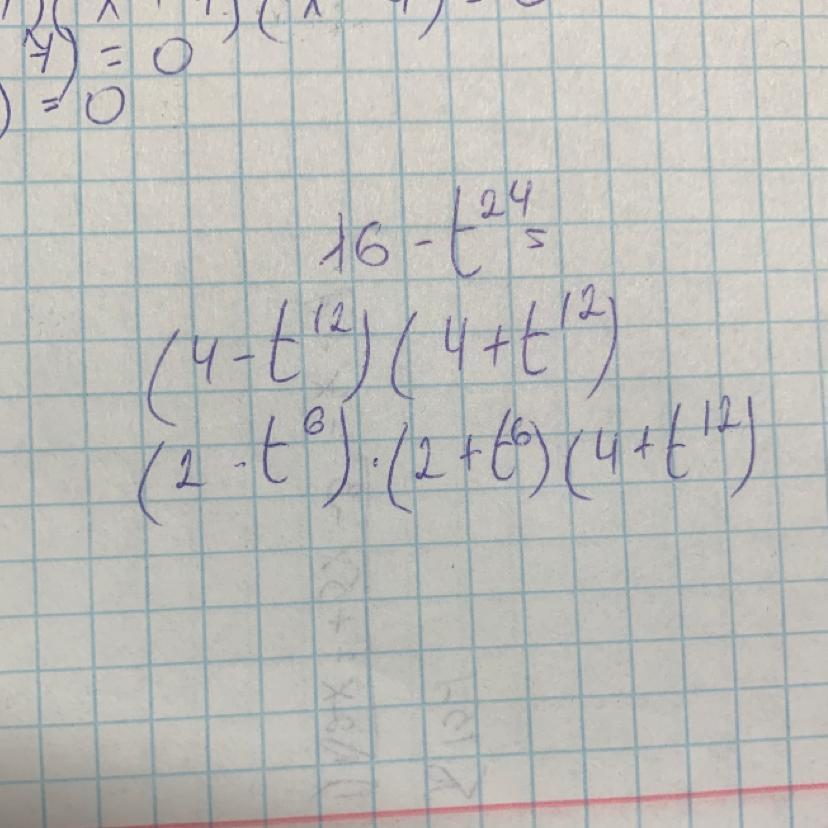 7) = 0
) = 0
16 - t²⁴ =
(4 - t¹²)(4 + t¹²)
(2 - t⁶)·(2 + t⁶)(4 + t¹²)